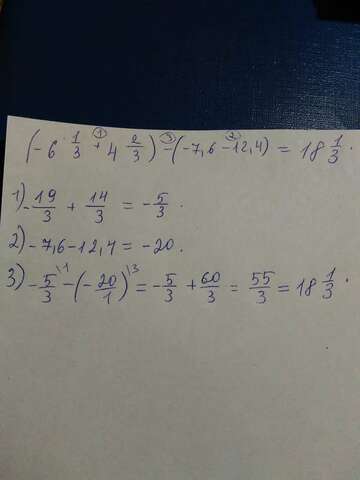 (-6 1/3 +① 4 2/3) -③ (-7,6 -② 12,4) = 18 1/3.
1) -19/3 + 14/3 = -5/3.
2) -7,6-12,4 = -20.
3) -5/3 \1 - (-20/1) \3 = -5/3 + 60/3 = 55/3 = 18 1/3.